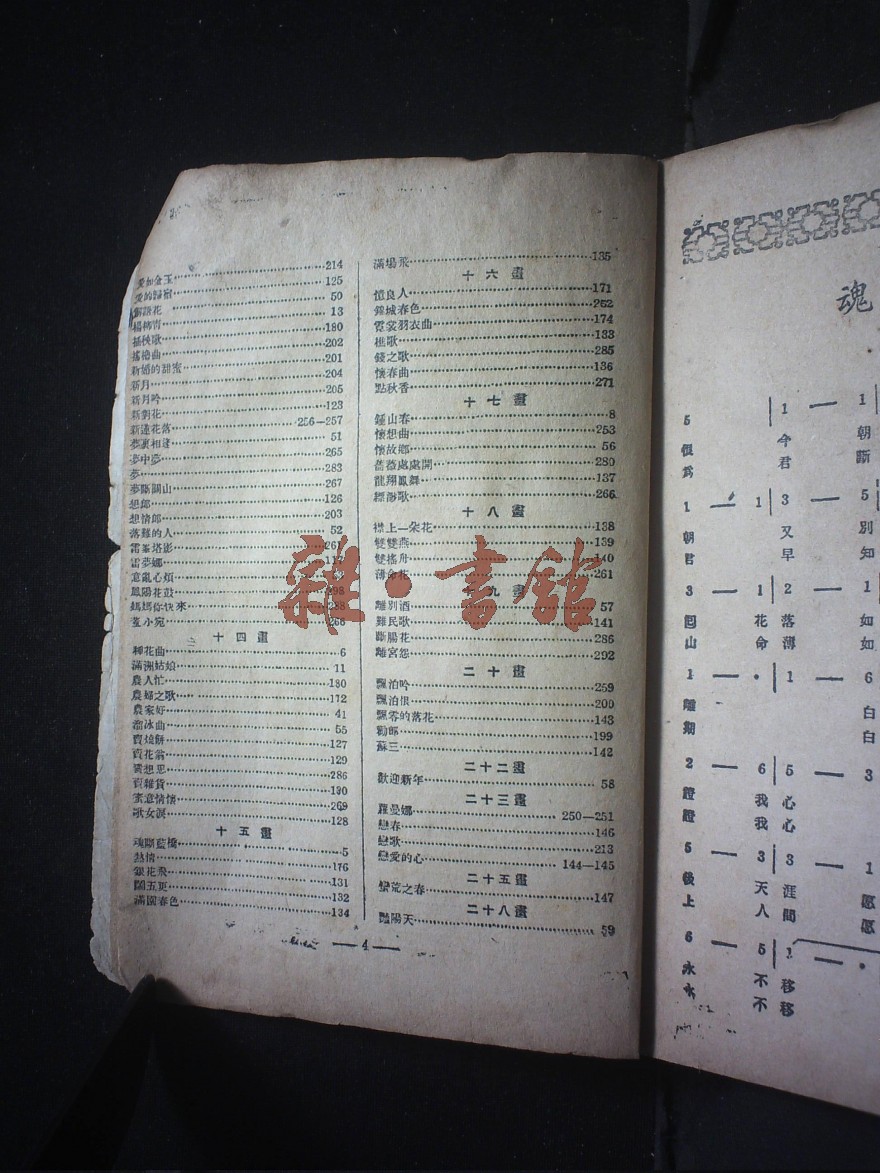 愛如金玉 214
愛的歸宿 125
解語花 50
楊柳青 13
插秧歌 180
搖椅曲 202
新婚的甜蜜 201
新月 204
新月吟 205
新對花 123
新蓮花落 256—257
夢裏相逢 51
夢中夢 265
夢 283
夢斷關山 267
想郎 126
想情郎 203
落難的人 52
雷峯塔影 261
雷夢娜
意亂心煩
鳳陽花鼓 298
媽媽你快來 288
董小宛 268
十四畫
種花曲 6
滿洲姑娘 11
農人忙 180
農婦之歌 172
農家好 41
溜冰曲 55
賣燒餅 127
賣花翁 129
賣相思 286
賣雜貨 130
蜜意情懷 269
歌女淚 128
十五畫
魂斷藍橋 5
熱情 176
銀花飛 131
鬧五更 132
滿園春色 134
滿場飛 135
十六畫
憶良人 171
錦城春色 262
霓裳羽衣曲 174
樵歌 133
錢之歌 285
懷春曲 136
點秋香 271
十七畫
鍾山春 8
懷想曲 253
懷故鄉 56
薔薇處處開 280
龍翔鳳舞 137
縹緲歌 266
十八畫
襟上一朵花 138
雙雙燕 139
雙搖舟 140
薄命花 261
十九畫
離別酒 57
難民歌 141
斷腸花 286
離宮怨 292
二十畫
飄泊吟 259
飄泊恨 200
飄零的落花 143
勸郎 199
蘇三 142
二十二畫
歡迎新年 58
二十三畫
羅曼娜 250—251
戀春 146
戀歌 213
戀愛的心 144—145
二十五畫
蠻荒之春 147
二十八畫
豔陽天 59
— 4 —
雜·書館
魂
1 — 1
5 今 朝
恨 君 斷
為
1 — 1 3 — 5
朝 又 別
君 早 知
3 — 1 2 — 1
回 花 落 如
山 命 薄 如
1 — · 1 — 6
離 白
期 白
2 — 6 5 — 3
證 我 心
證 我 心
5 — 3 3 — 1
後 天 涯 愿
上 人 間 愿
6 — 5 1 — ·
永 不 移
永 不 移